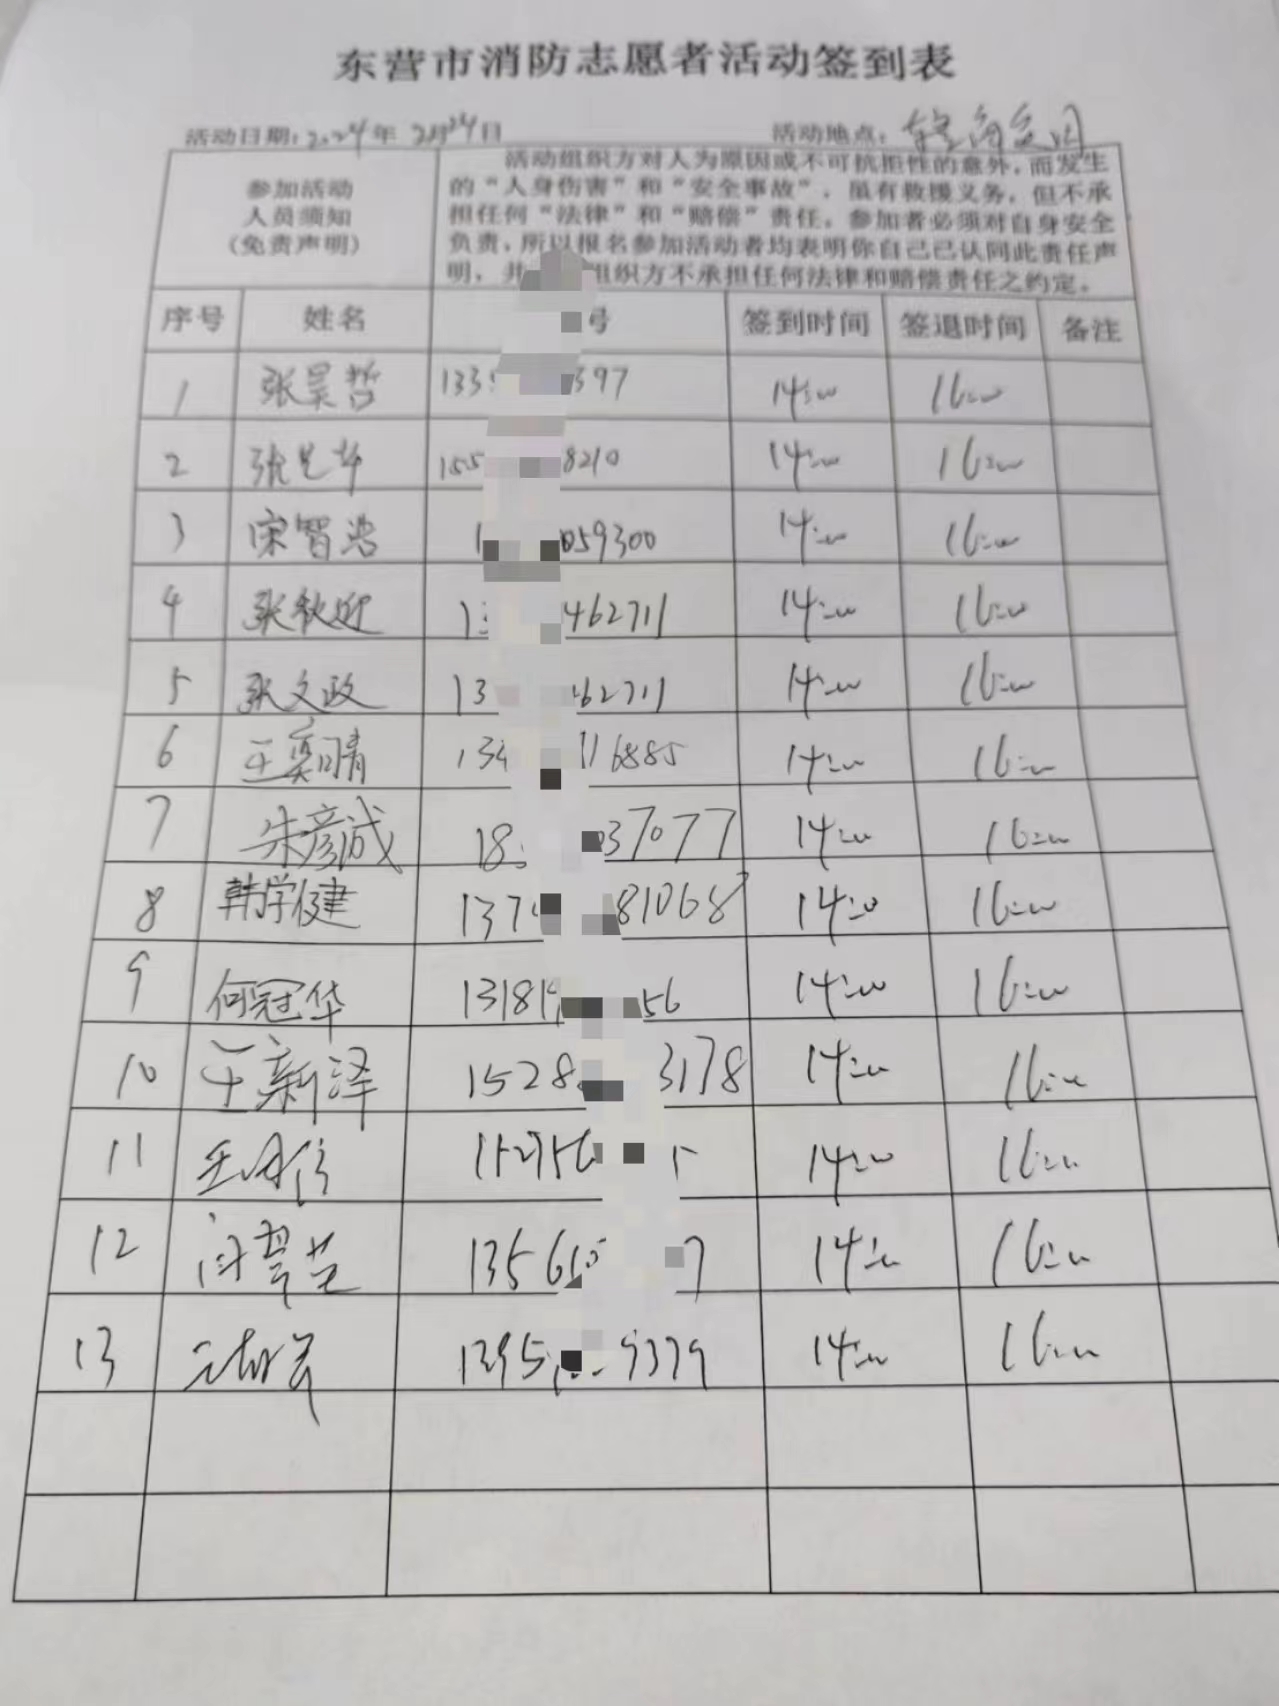 东营市消防志愿者活动签到表
活动日期：2024年 2月24日 活动地点：
参加活动
人员须知
（免责声明）
活动组织方对人为原因或不可抗拒性的意外，而发生
的“人身伤害”和“安全事故”，虽有救援义务，但不承
担任何“法律”和“赔偿”责任。参加者必须对自身安全
负责，所以报名参加活动者均表明你自己已认同此责任声
明，并 组织方不承担任何法律和赔偿责任之约定。
序号 姓名 号 签到时间 签退时间 备注
1 张昊哲 133 397 14:00 16:00
2 张 155 8210 14:00 16:00
3 宋智浩 1 059300 14:00 16:00
4 张秋迎 13 462711 14:00 16:00
5 张文政 13 62711 14:00 16:00
6 王奕晴 134 116885 14:00 16:00
7 朱彦诚 18 037077 14:00 16:00
8 韩学健 137 81068 14:00 16:00
9 何冠华 13181 56 14:00 16:00
10 王新泽 1528 3178 14:00 16:00
11 15 5 14:00 16:00
12 1356 7 14:00 16:00
13 1395 9379 14:00 16:00